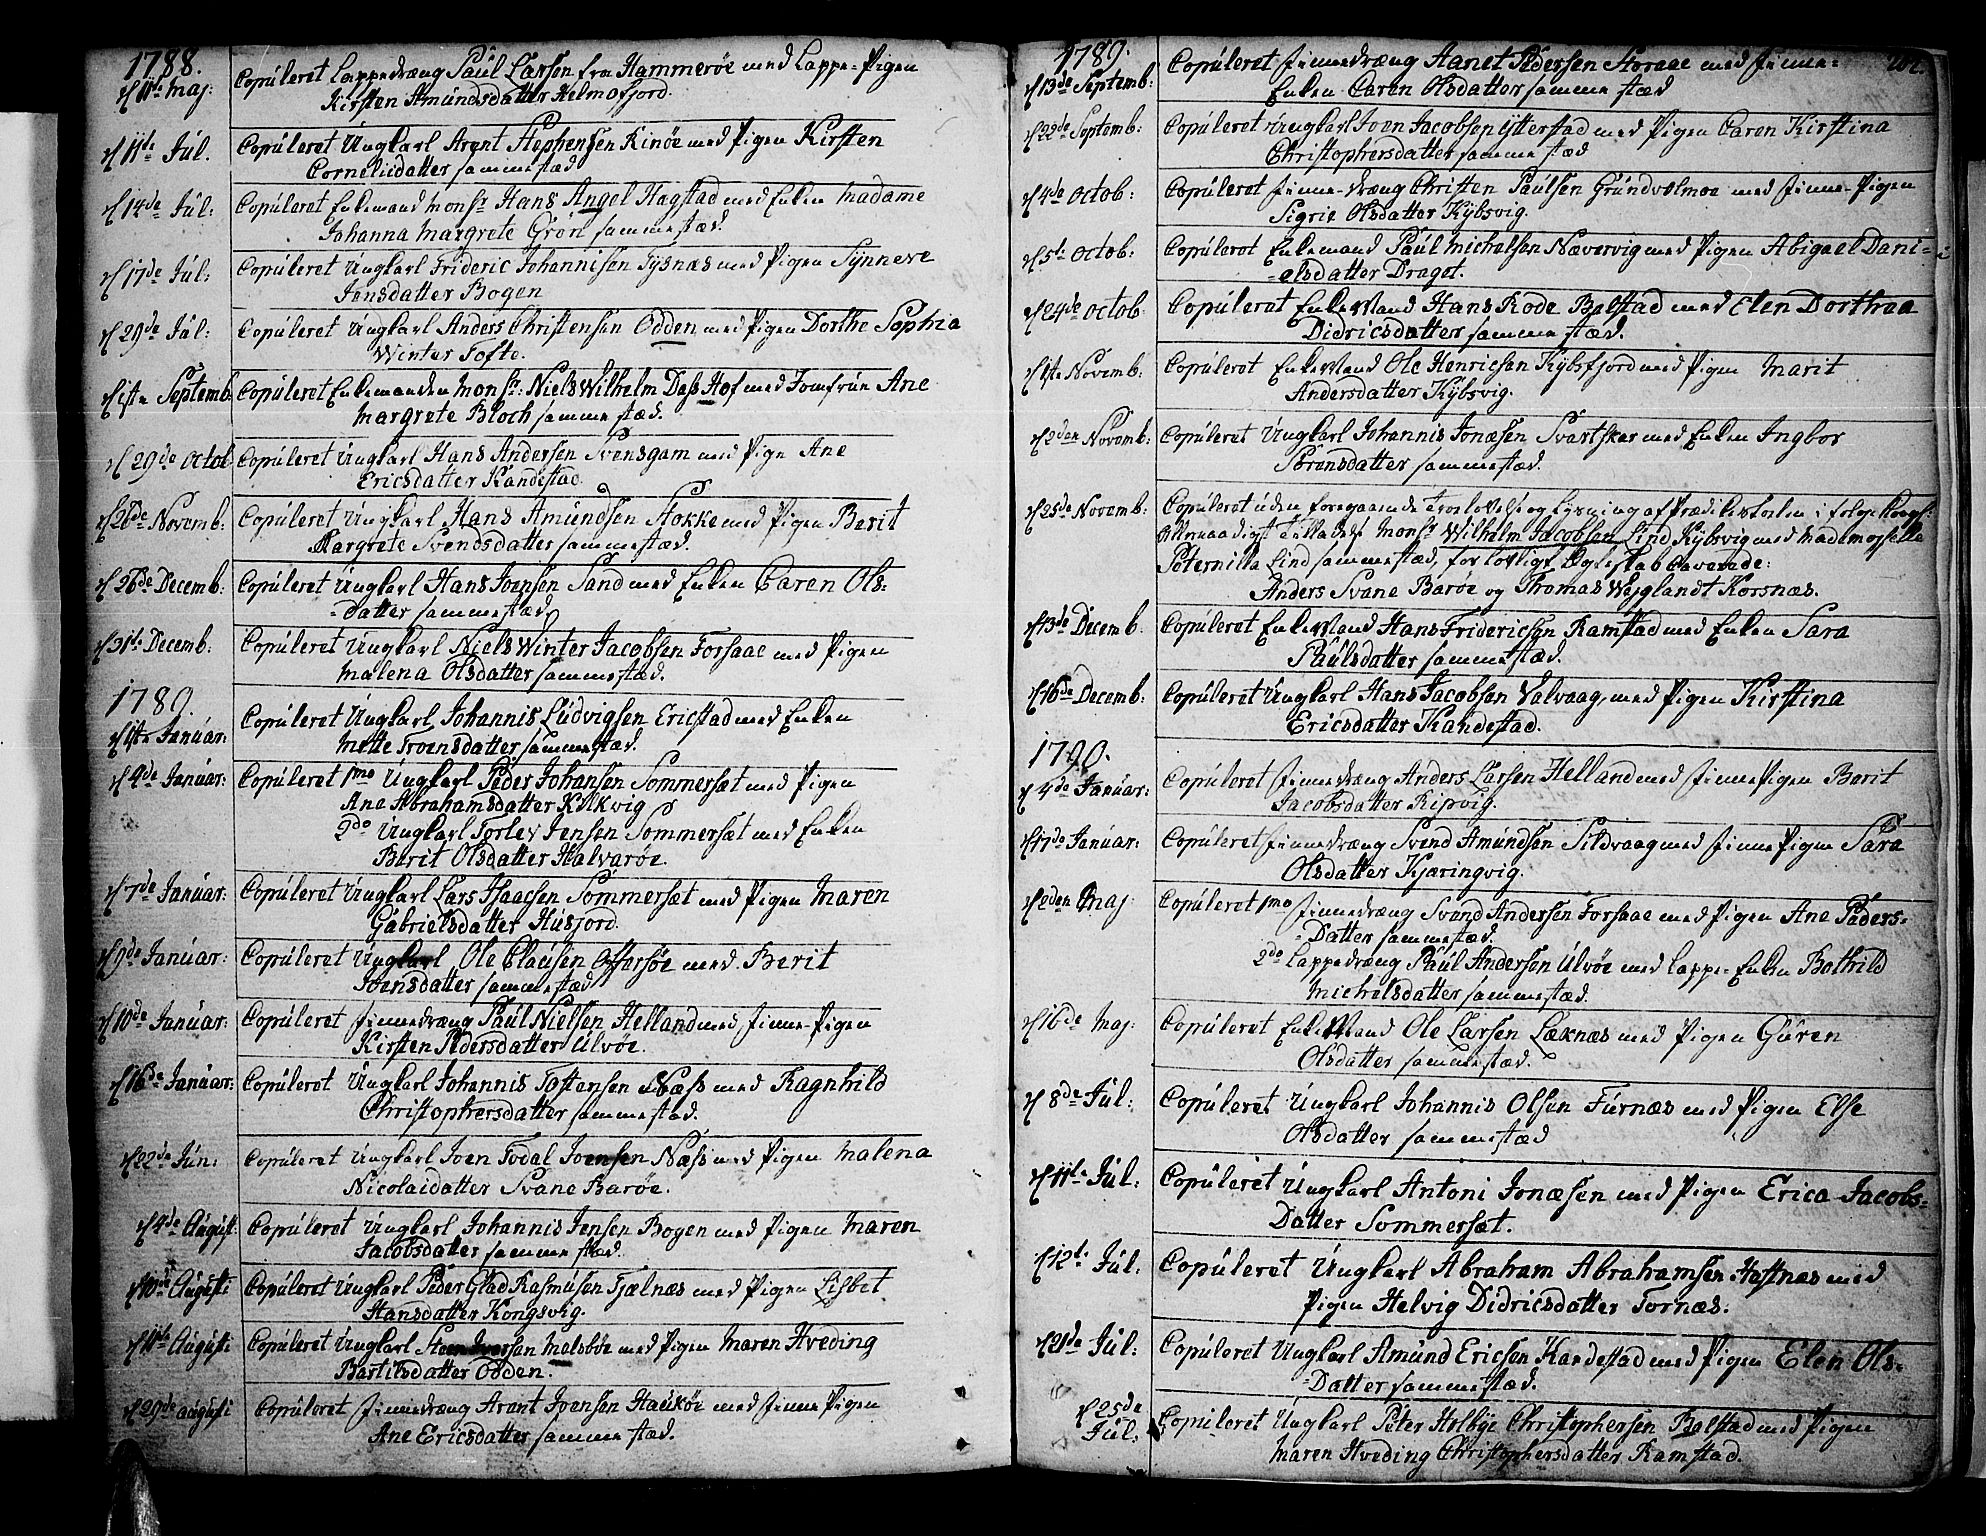 1788.
d 11te Maj: Copúleret Lappedræng Paúl Larsen fra Hammerøe med Lappe-Pigen
Kirsten Amúndsdatter Helmofjord.
d 11te Júl. Copúleret Úngkarl Arent Stephensen Rinøe med Pigen Kirsten
Corneliidatter sammestæd
d 14de Júl: Copúleret Enkemand Monsr Hans Angel Hagstad med Enken Madame
Johanna Margrete Grøn sammestæd.
d 17de Júl: Copúleret Úngkarl Frideric Johannisen Tysnæs med Pigen Synneve
Jensdatter Bogen
d 29de Júl: Copúleret Úngkarl Anders Christensen Odden med Pigen Dorthe Sophia
Winter Tofte.
d 1ste Septemb Copúleret Enkemanden Monsr: Niels Wilhelm Dass Hof med Jomfrúe Ane
Margrete Bloch sammestæd.
d 29de Octob Copúleret Úngkarl Hans Andersen Svensgam med Pige Ane
Ericsdatter Kandestad.
d 26de Novemb: Copúleret Úngkarl Hans Amúndsen Stokke med Pigen Berit
Margrete Svendsdatter sammestæd.
d 26de Decemb: Copúleret Úngkarl Hans Joensen Sand med Enken Caren Ols-
-datter sammestæd
d 31te Decemb. Copúleret Úngkarl Niels Winter Jacobsen Forsaae med Pigen
Malena Olsdatter sammestæd.
1789.
d 1ste Janúar: Copúleret Úngkarl Johannis Lúdvigsen Ericstad med Enken
Mette Troensdatter sammestæd.
d 4de Janúar: Copúleret 1mo Úngkarl Peder Johansen Sommersæt med Pigen
Ane Abrahamsdatter Kilkvig
2do Úngkarl Torlev Jensen Sommersæt med Enken
Berit Olsdatter Halvarøe.
d 7de Janúar: Copúleret Úngkarl Lars Isaacsen Sommersæt med Pigen Maren
Gabrielsdatter Húsjord.
d 9de Janúar: Copúleret Úngkarl Ole Claúsen Offersøe med Berit
Joensdatter sammestæd
d 10de Janúar: Copúleret Finnedræng Paúl Nielsen Helland med Finne-Pigen
Kirsten Pedersdatter Úlvøe.
d 16de Janúar: Copúleret Úngkarl Johannis Tostensen Næss med Ragnhild
Christophersdatter sammestæd.
d 22de Jún: Copúleret Úngkarl Joen Todal Joensen Næss med Pigen Malena
Nicolaidatter Svane Barøe.
d 4de Aúgust: Copúleret Úngkarl Johannis Jensen Bogen med Pigen Maren
Jacobsdatter sammestæd.
d 10de Aúgusti Copúleret Úngkarl Peder Glad Rasmúsen Tjælnæs med Pigen Lisbet
Hansdatter Kongsvig.
d 11te Aúgusti Copúleret Úngkarl Steen Iversen Melsboe med Pigen Maren Hveding
Bartilsdatter Odden.
d 29de Aúgusti Copúleret Finnedræng Arent Joensen Haúkøe med Finne Pigen
Ane Ericsdatter sammestæd.
1789.
d 13de Septemb: Copúleret Finnedræng Hanet Pedersen Forsaae med Finne-
Enken Caren Olsdatter sammestæd
d 22de Septemb: Copúleret Úngkarl Joen Jacobsen Ytterstad med Pigen Caren Kirstina
Christophersdatter sammestæd
d 4de Octob: Copúleret Finne-dræng Christen Paúlsen Grúndvelmoe med Finne-Pigen
Sigrie Olsdatter Kybsvig.
d 5te Octob: Copúleret Enkemand Paúl Michelsen Nævervig med Pigen Abigael Dani-
-elsdatter Draget.
d 24de Octob: Copúleret Enkemand Hans Rode Balstad med Elen Dorthea
Didricsdatter sammestæd.
d 1ste Novemb: Copúleret Enkemand Ole Henricsen Kybsfjord med Pigen Marit
Andersdatter Kybsvig.
d 2den Novemb: Copúleret Úngkarl Johannis Jonæsen Svartskar med Enken Ingbor
Sørensdatter sammestæd.
d 25de Novemb: Copúleret úden foregaaende Trolovelse og Lysning af Prædikestolen i følge Kongl:
Allernaadigst Tilladelse Monsr Wilhelm Jacobsen Lind Kybsvig med Mademoyselle
Peternilla Lind sammestæd, for lovligt Ægteskab Caverede:
Anders Svane Barøe og Thomas Weyglandt Korsnæs.
d 13de Decemb Copúleret Enkemand Hans Fridericsen Ramstad med Enken Sara
Paúlsdatter sammestæd.
d 16de Decemb: Copúleret Úngkarl Hans Jacobsen Valvaag, med Pigen Kirstina
Ericsdatter Kandestad.
1790.
d 4de Janúar: Copúleret Finnedræng Anders Larsen Helland med Finne Pigen Berit
Jacobsdatter Ripvig.
d 17de Janúar: Copúleret Finnedræng Svend Amúndsen Sildvaag med Finne Pigen Sara
Olsdatter Kjæringvig.
d 2den Maj Copúleret 1mo Finnedræng Svend Andersen Forsaae med Pigen Ane Peders-
-Datter sammestæd.
2do Lappedræng Paúl Andersen Úlvøe med Lappe-Enken Bothild
Michelsdatter sammestæd.
d 16de Maj: Copúleret Enkemand Ole Larsen Læknæs med Pigen Gúren
Olsdatter sammestæd.
d 8de Júl: Copúleret Úngkarl Johannis Olsen Fúrnæs med Pigen Else
Olsdatter sammestæd
d 11te Júl: Copúleret Úngkarl Antoni Jonæsen med Pigen Erica Jacobs-
Datter Sommersæt.
d 12te Júl: Copúleret Úngkarl Abraham Abrahamsen Hafnæs med
Pigen Helvig Didricsdatter Tornæs.
d 21de Júl: Copúleret Úngkarl Amúnd Ericsen Kandestad med Pigen Elen Ols-
-Datter sammestæd.
d 25de Júl: Copúleret Úngkarl Peter Holbye Christophersen Balstad med Pigen
Maren Hveding Christophersdatter Ramstad.